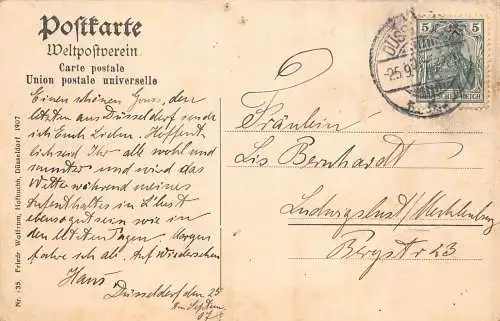 Postkarte
Weltpostverein
Carte postale
Union postale universelle
Einen schönen Gruss, den
letzten aus Düsseldorf sende
ich Euch Lieben. Hoffent
lich seid Ihr alle wohl und
munter und wird das
Wetter während meines
Aufenthaltes in
ebenso gut sein wie in
den letzten Tagen. Morgen
fahre ich ab. Auf Wiedersehen
Hans
Düsseldorf den 25
ten Septem.
07
Fräulein
Lis Bernhardt
Ludwigslust/Mecklenburg
Bergstr 23
5 5
DÜSS
25.9.
Nr. 135. Friedr. Wolfrum, Hofbuchh., Düsseldorf 1907